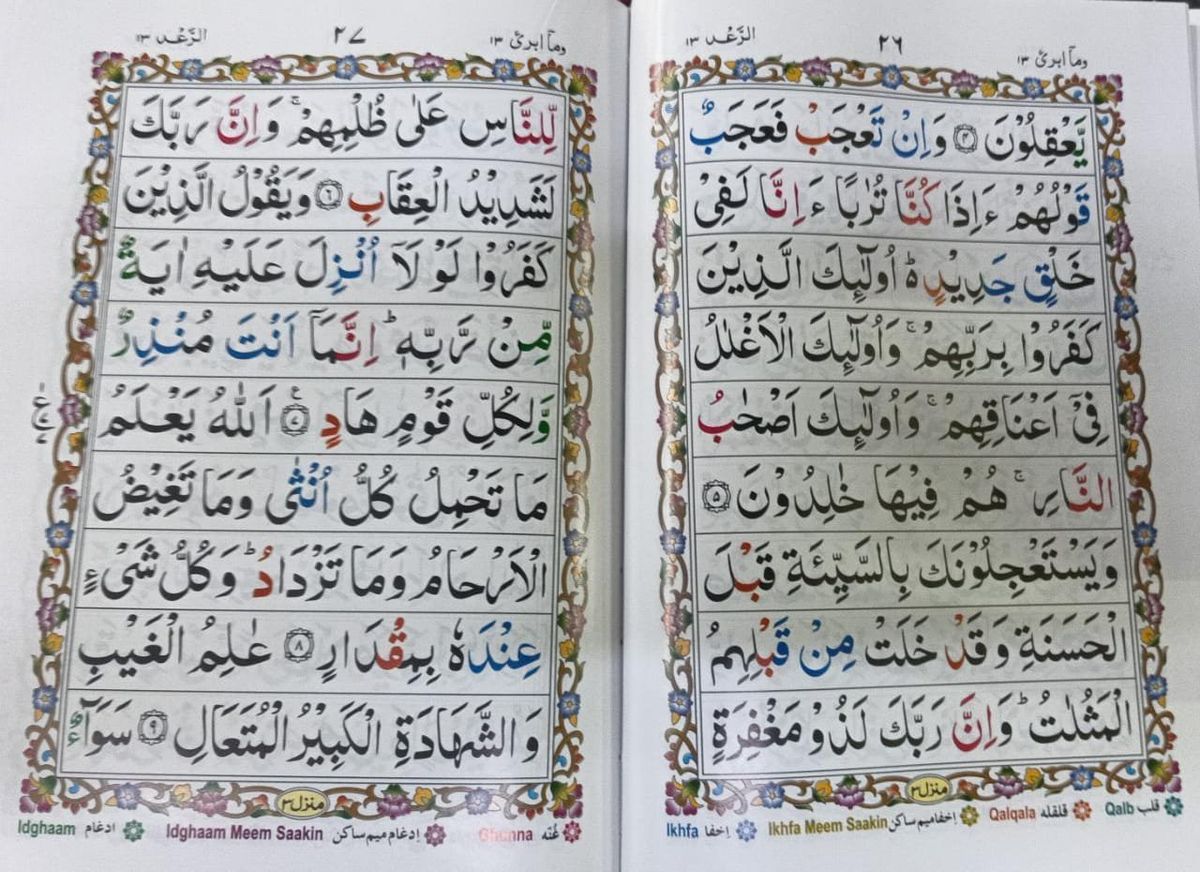 وما ابرئ ١٣
٢٦
الرَّعْد ١٣
يَّعْقِلُوْنَ ۝٤ وَاِنْ تَعْجَبْ فَعَجَبٌ
قَوْلُهُمْ ءَاِذَا كُنَّا تُرٰبًا ءَاِنَّا لَفِیْ
خَلْقٍ جَدِيْدٍ۬ؕ اُولٰٓئِكَ الَّذِيْنَ
كَفَرُوْا بِرَبِّهِمْ ۚ وَاُولٰٓئِكَ الْاَغْلٰلُ
فِیْۤ اَعْنَاقِهِمْ ۚ وَاُولٰٓئِكَ اَصْحٰبُ
النَّارِ ۚ هُمْ فِيْهَا خٰلِدُوْنَ ۝٥
وَيَسْتَعْجِلُوْنَكَ بِالسَّيِّئَةِ قَبْلَ
الْحَسَنَةِ وَقَدْ خَلَتْ مِنْ قَبْلِهِمُ
الْمَثُلٰتُ ؕ وَاِنَّ رَبَّكَ لَذُوْ مَغْفِرَةٍ
منزل ٣
Ikhfa اِخفا Ikhfa Meem Saakin اِخفا میم ساکن Qalqala قلقله Qalb قلب
وما ابرئ ١٣
٢٧
الرَّعْد ١٣
لِّلنَّاسِ عَلٰى ظُلْمِهِمْ ۚ وَاِنَّ رَبَّكَ
لَشَدِيْدُ الْعِقَابِ ۝٦ وَيَقُوْلُ الَّذِيْنَ
كَفَرُوْا لَوْلَاۤ اُنْزِلَ عَلَيْهِ اٰيَةٌ
مِّنْ رَّبِّهٖ ؕ اِنَّمَاۤ اَنْتَ مُنْذِرٌ
وَّلِكُلِّ قَوْمٍ هَادٍ ۝٧ اَللّٰهُ يَعْلَمُ
مَا تَحْمِلُ كُلُّ اُنْثٰى وَمَا تَغِيْضُ
الْاَرْحَامُ وَمَا تَزْدَادُ ؕ وَكُلُّ شَیْءٍ
عِنْدَهٗ بِمِقْدَارٍ ۝٨ عٰلِمُ الْغَيْبِ
وَالشَّهَادَةِ الْكَبِيْرُ الْمُتَعَالِ ۝٩ سَوَآءٌ
منزل ٣
Idghaam ادغام Idghaam Meem Saakin اِدغام میم ساکن Ghunna غُنّه